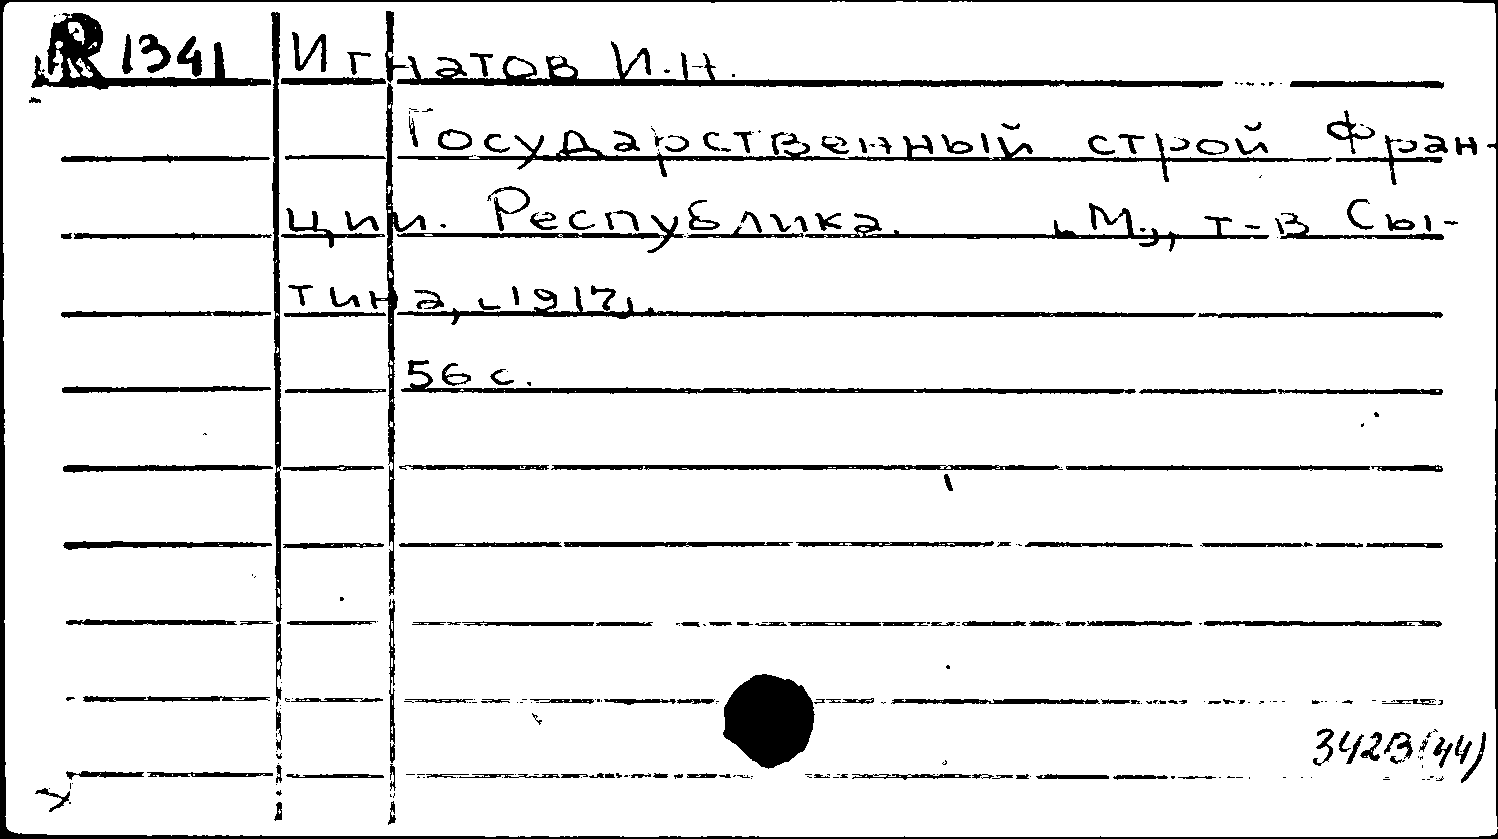 R 1341 Игнатов И.Н.
Государственный строй Фран-
ции. Республика. [М.], т-в Сы-
тина, [1917].
56 с.
342В(44)